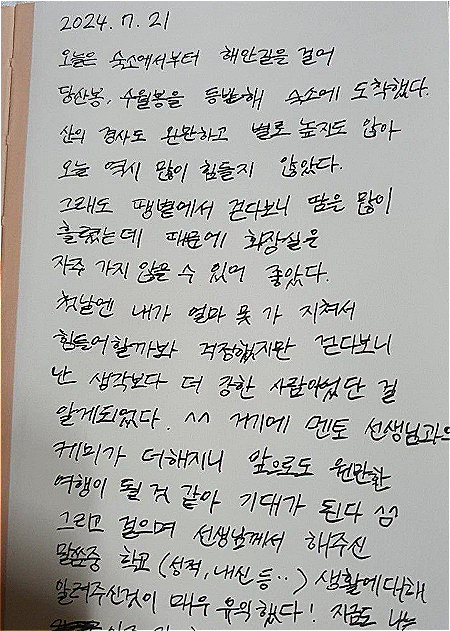 2024. 7. 21
오늘은 숙소에서부터 해안길을 걸어
당산봉, 수월봉을 등반해 숙소에 도착했다.
산의 경사도 완만하고 별로 높지도 않아
오늘 역시 많이 힘들지 않았다.
그래도 땡볕에서 걷다보니 땀은 많이
흘렸는데 때문에 화장실은
자주 가지 않을 수 있어 좋았다.
첫날엔 내가 얼마 못 가 지쳐서
힘들어할까봐 걱정했지만 걷다보니
난 생각보다 더 강한 사람이었단 걸
알게되었다. ^^ 거기에 멘토 선생님과의
케미가 더해지니 앞으로도 원만한
여행이 될 것 같아 기대가 된다
그리고 걸으며 선생님께서 해주신
말씀중 학교 (성적, 내신 등..) 생활에대해
알려주신것이 매우 유익했다! 지금도 나는